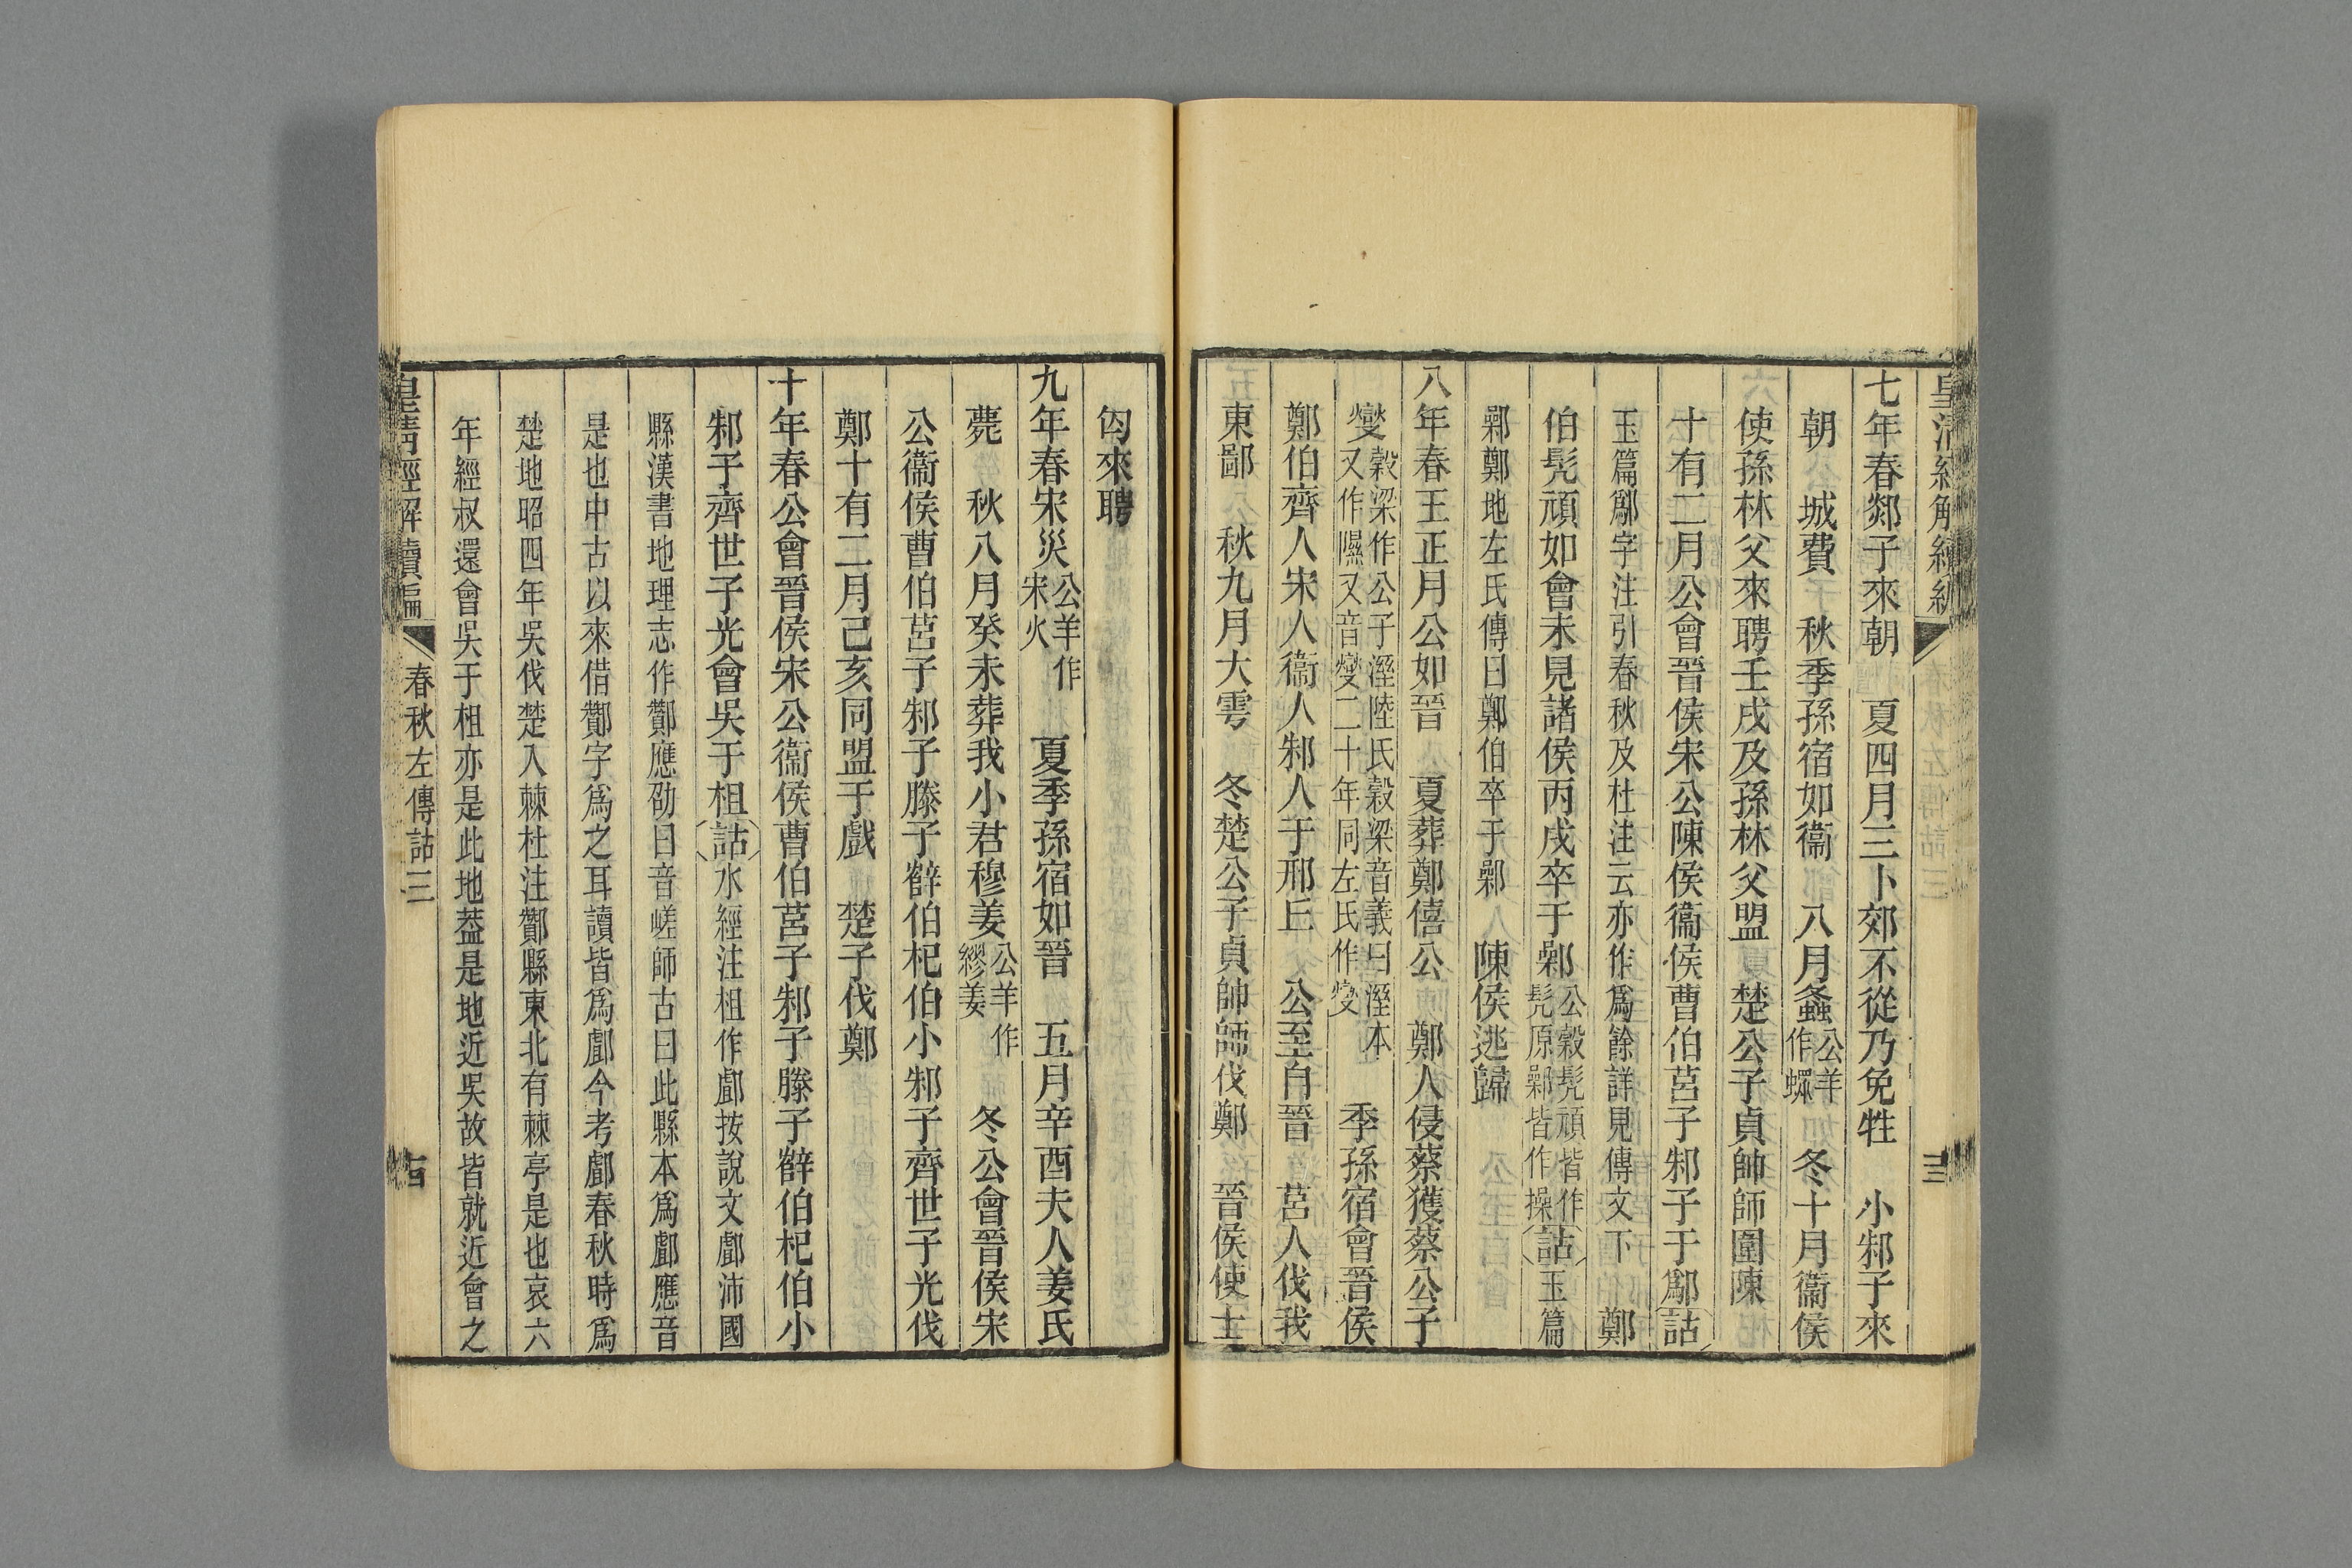 七年春郯子來朝　夏四月三卜郊不從乃免牲　小邾子來
朝　城費　秋季孫宿如衞　八月螽公羊作蠌　冬十月衞侯
使孫林父來聘壬戌及孫林父盟　楚公子貞帥師圍陳
十有二月公會晉侯宋公陳侯衞侯曹伯莒子邾子于鄬詁
玉篇鄬字注引春秋及杜注云亦作爲餘詳見傳文下　鄭
伯髠頑如會未見諸侯丙戌卒于鄵公穀髠頑皆作髠原鄵皆作操詁玉篇
鄵鄭地左氏傳曰鄭伯卒于鄵　陳侯逃歸
八年春王正月公如晉　夏葬鄭僖公　鄭人侵蔡獲蔡公子
燮穀梁作公子溼陸氏穀梁音義曰溼本又作隰又音燮二十年同左氏作燮　季孫宿會晉侯
鄭伯齊人宋人衞人邾人于邢丘　公至自晉　莒人伐我
東鄙　秋九月大雩　冬楚公子貞帥師伐鄭　晉侯使士
匄來聘
九年春宋災公羊作宋火　夏季孫宿如晉　五月辛酉夫人姜氏
薨　秋八月癸未葬我小君穆姜公羊作繆姜　冬公會晉侯宋
公衞侯曹伯莒子邾子滕子薛伯杞伯小邾子齊世子光伐
鄭十有二月己亥同盟于戲　楚子伐鄭
十年春公會晉侯宋公衞侯曹伯莒子邾子滕子薛伯杞伯小
邾子齊世子光會吳于柤詁水經注柤作鄌按說文鄌沛國
縣漢書地理志作酇應劭曰音嵯師古曰此縣本爲鄌應音
是也中古以來借酇字爲之耳讀皆爲鄌今考鄌春秋時爲
楚地昭四年吳伐楚入棘杜注酇縣東北有棘亭是也哀六
年經叔還會吳于柤亦是此地葢是地近吳故皆就近會之
皇清經解續編　春秋左傳詁三　十四